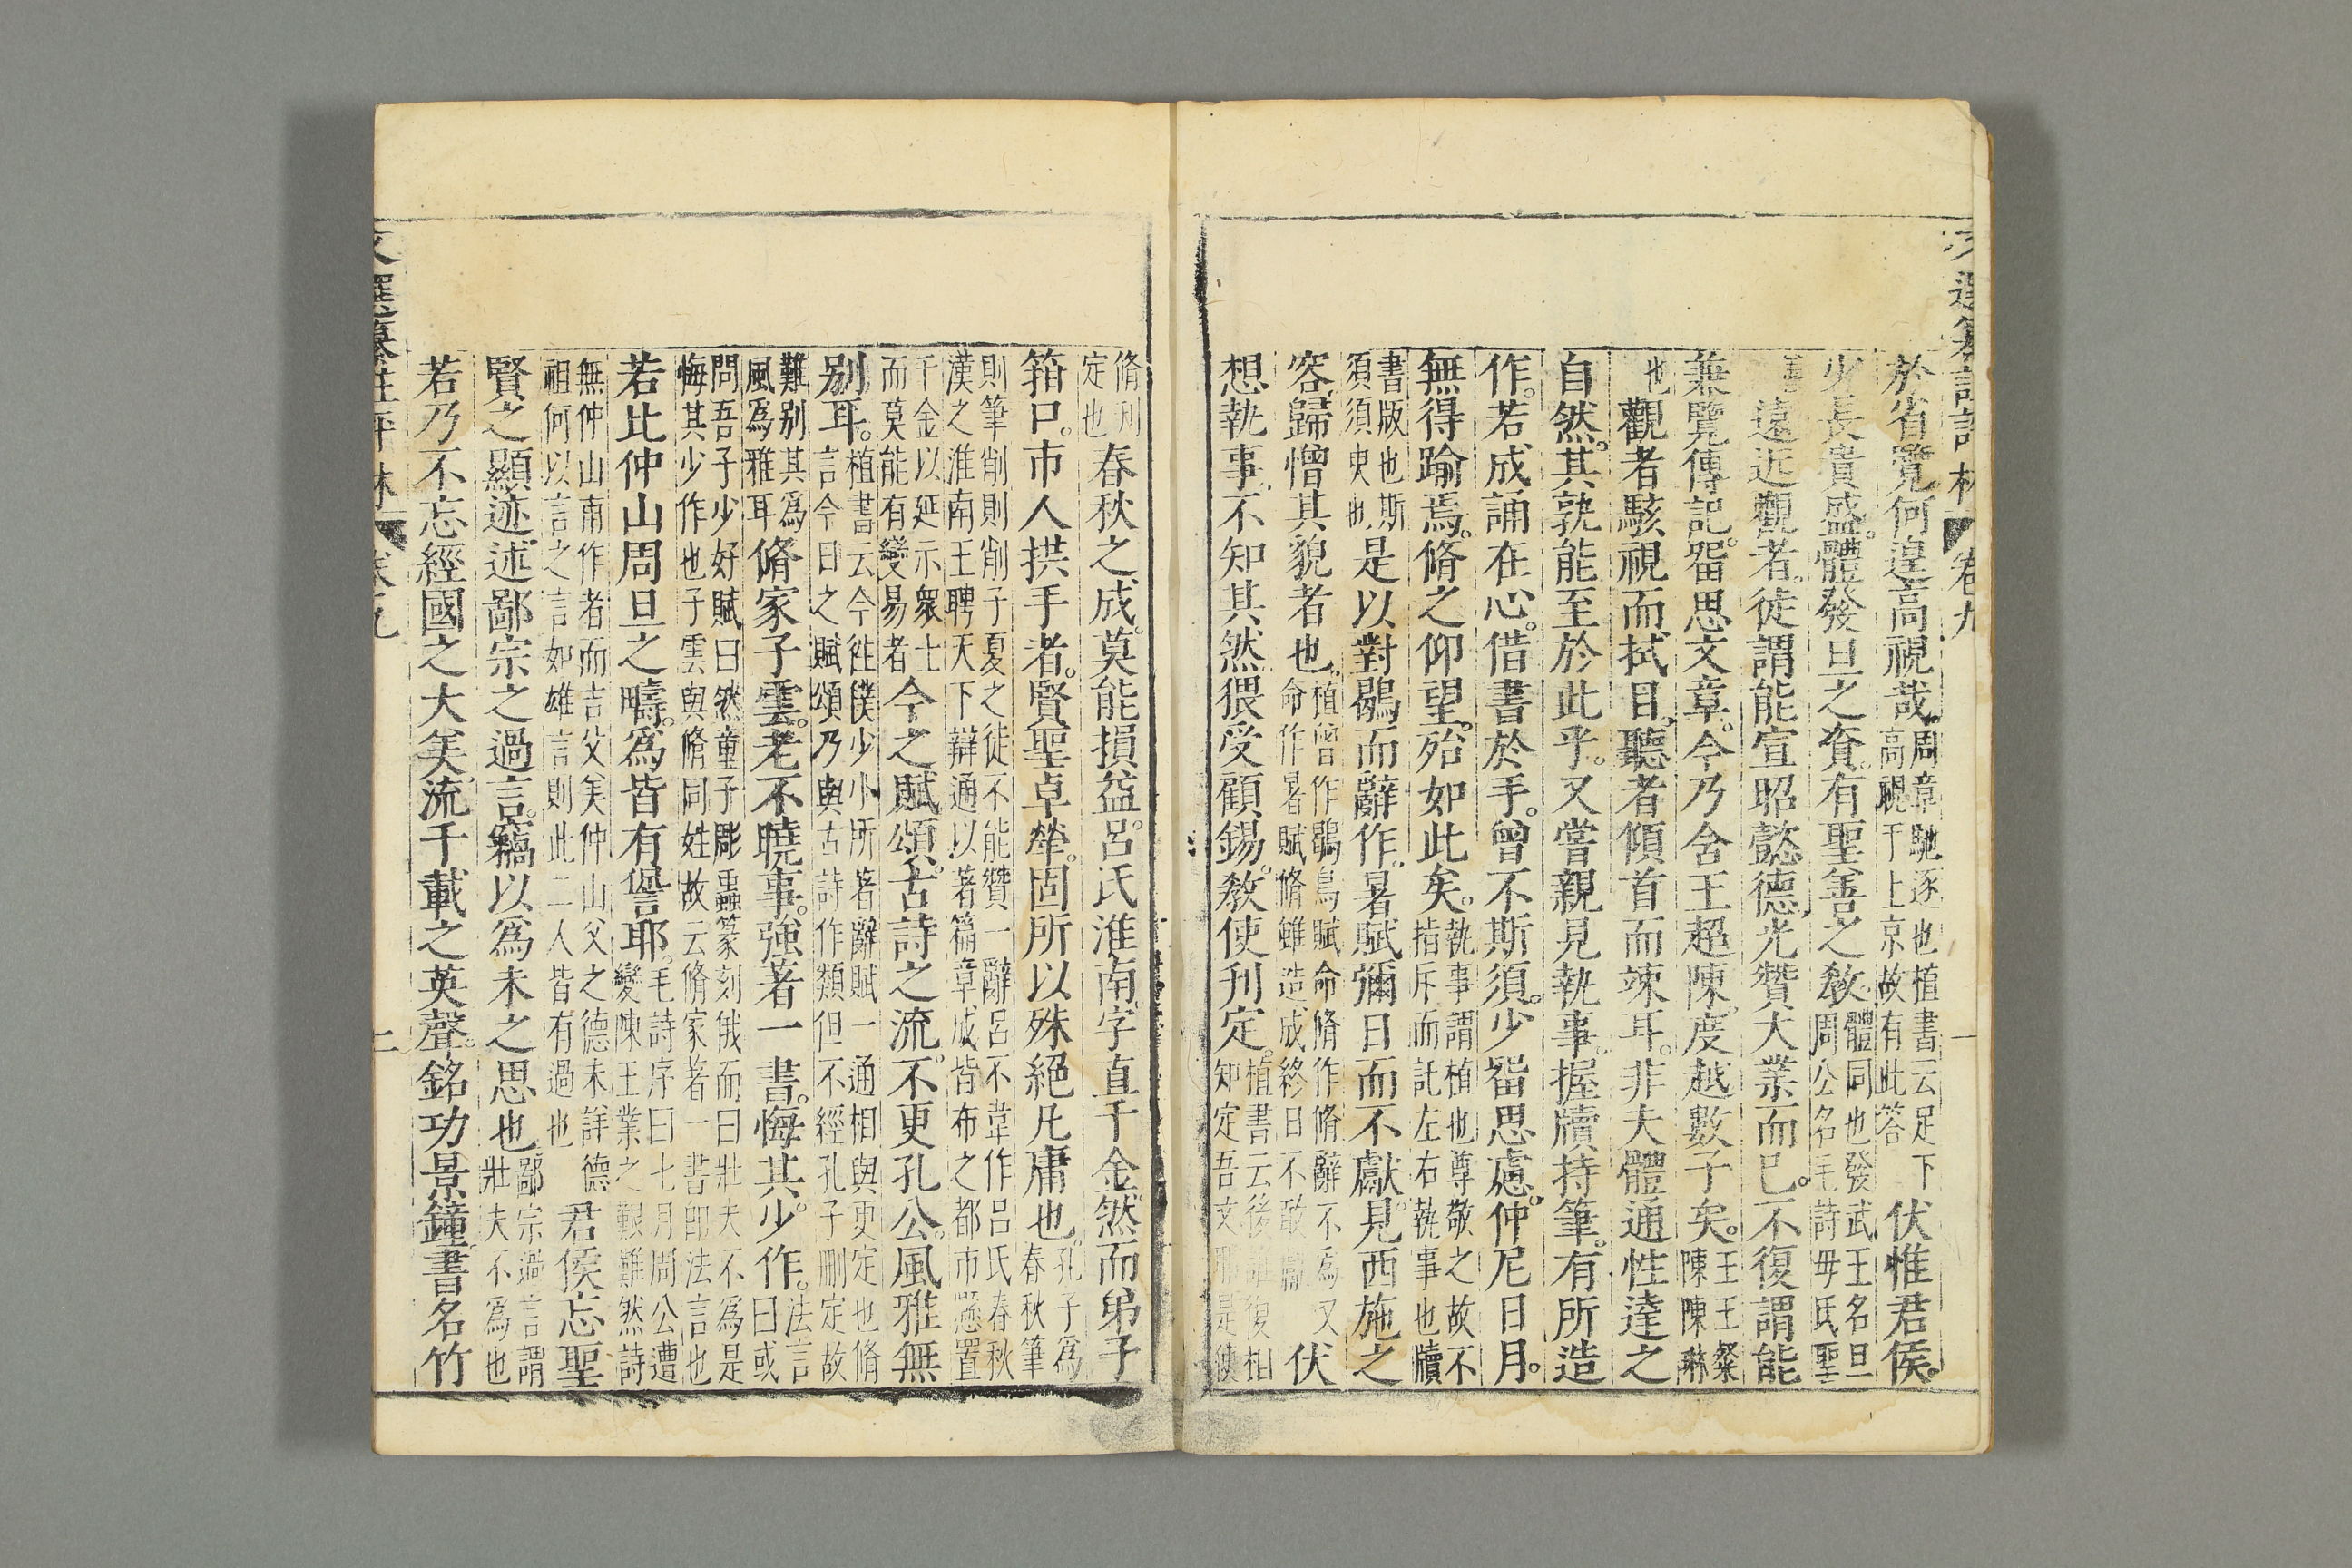 卷九
於省覽何遑高視哉周章馳逐也植書云足下高視于上京故有此答伏惟君侯
少長貴盛體發旦之資有聖善之敎體同也發武王名旦周公名毛詩毋氏聖
善遠近觀者徒謂能宣昭懿德光贊大業而已不復謂能
兼覽傳記畱思文章今乃含王超陳度越數子矣王王粲陳陳琳
也觀者駭視而拭目聽者傾首而竦耳非夫體通性達之
自然其孰能至於此乎又嘗親見執事握牘持筆有所造
作若成誦在心借書於手曾不斯須少畱思慮仲尼日月
無得踰焉脩之仰望殆如此矣執事謂植也尊敬之故不指斥而託左右執事也牘
書版也斯須須臾也是以對鶡而辭作暑賦彌日而不獻見西施之
容歸憎其貌者也植曾作鶡鳥賦命脩作脩辭不為又命作暑賦脩雖造成終日不敢獻伏
想執事不知其然猥受顧錫敎使刋定植書云後誰復相知定吾文
脩刋定也春秋之成莫能損益呂氏淮南字直千金然而弟子
箝口市人拱手者賢聖卓犖固所以殊絕凡庸也孔子為春秋筆
則筆削則削子夏之徒不能贊一辭呂不韋作呂氏春秋漢之淮南王聘天下辯通以著篇章成皆布之都市懸置
千金以延示衆士而莫能有變易者今之賦頌古詩之流不更孔公風雅無
别耳植書云今徃僕少小所著辭賦一通相與更定也脩言今日之賦頌乃與古詩作類但不經孔子刪定故
難别其為風為雅耳脩家子雲老不曉事強著一書悔其少作法言曰或
問吾子少好賦曰然童子彫蟲篆刻俄而曰壯夫不為是悔其少作也子雲與脩同姓故云脩家著一書卽法言也
若比仲山周旦之疇為皆有諐耶毛詩序曰七月周公遭變陳王業之艱難然詩
無仲山甫作者而吉父美仲山父之德未詳德祖何以言之言如雄言則此二人皆有過也君侯忘聖
賢之顯迹述鄙宗之過言竊以為未之思也鄙宗過言謂壯夫不為也
若乃不忘經國之大美流千載之英聲銘功景鐘書名竹